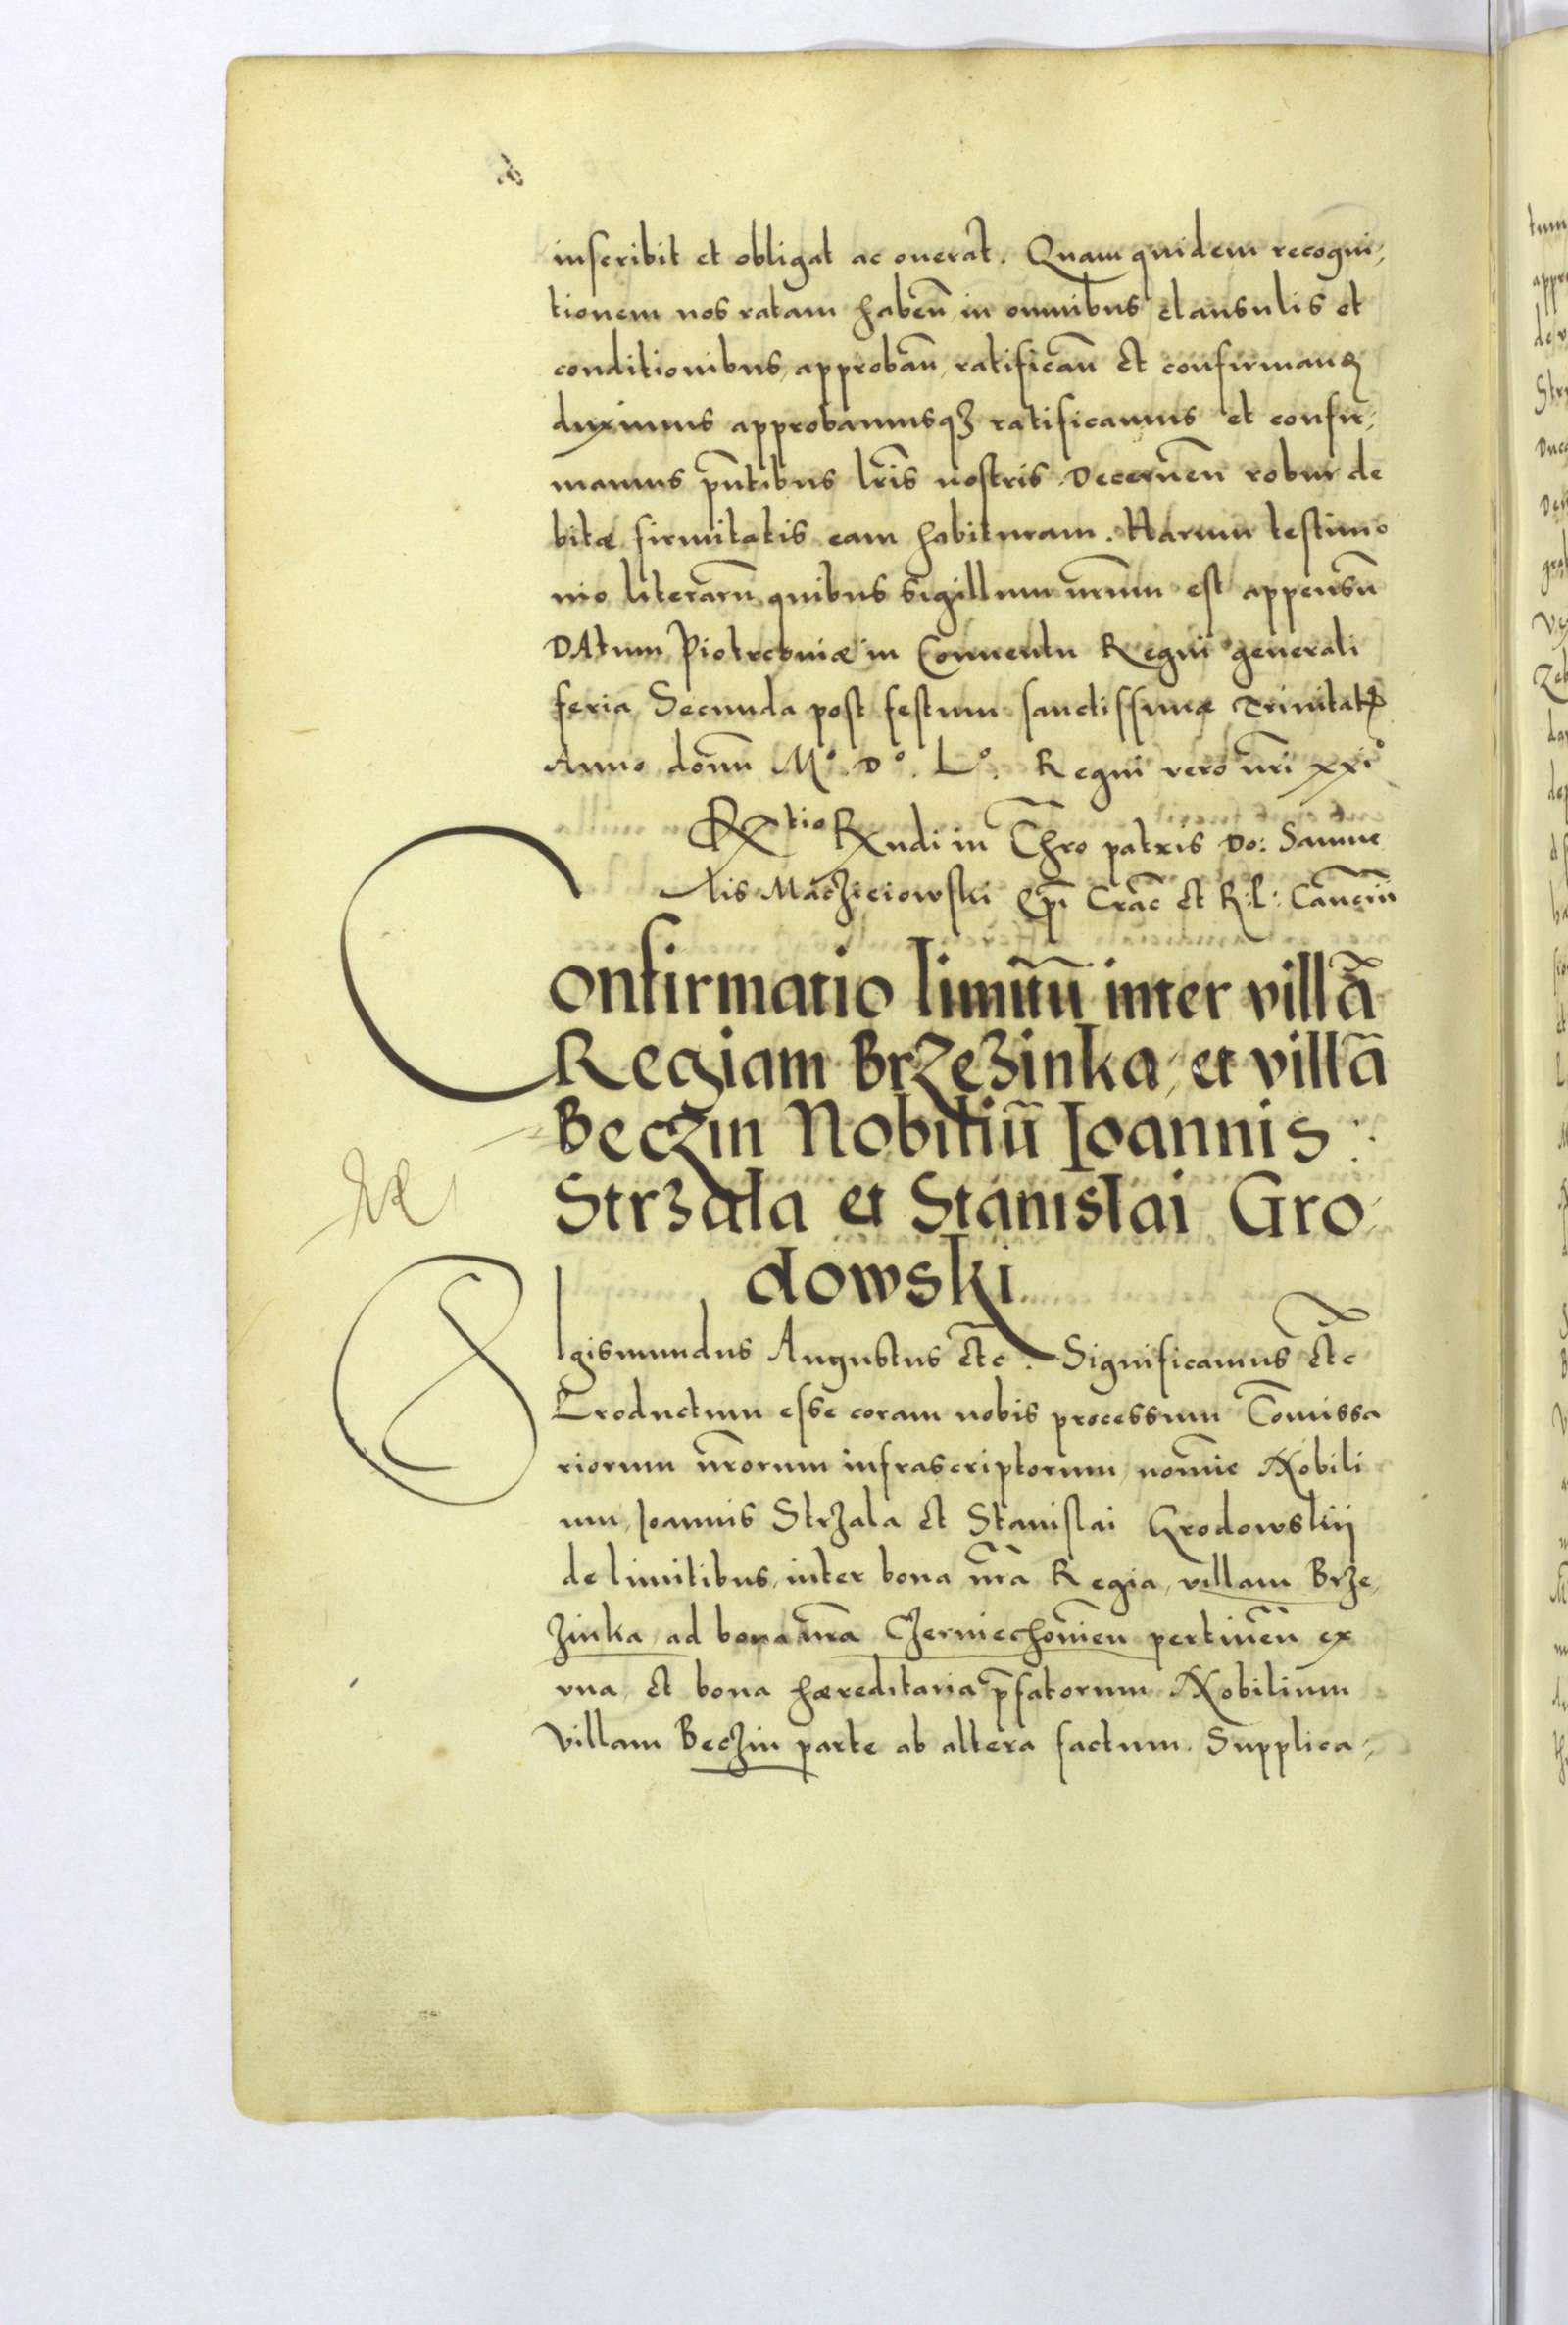 inscribit et obligat ac onerat. Quam quidem recogni,
tionem nos ratam habeñ in omnibus clausulis et
conditionibus, approbañ, ratificañ et confirmanꝝ
duximus approbamusqꝫ ratificamus et confir,
mamus pñtibus lr̃is nostris. Decerneñ robur de
bitæ firmitatis eam habituram. Harum testimo
nio literarũ quibus sigillum nr̃um est appensũ
DAtum Piotrcouiæ in Conuentu Regni generali
feria Secunda post festum sanctissimæ Trinitatꝭ
Anno domñ Mᵒ. Dᵒ. Lᵒ. Regni vero nr̃i xxiᵒ
Rᵗⁱᵒ Rndi in Chr̃o patris Do: Samue
lis Maczieiowski Ep̃i Crac̃ et R: P: Cancrii
Confirmatio limitũ inter villã
Regiam Brzezinka, et villã
Beczin Nobiliũ Ioannis
Strzala et Stanislai Gro,
dowski
SIgismundus Augustus etc̃. Significamus etc̃
Productum esse coram nobis processum Com̃issa
riorum nr̃orum infrascriptorum, nomĩe Nobili
um, Ioannis Strzala et Stanislai Grodowskij
de limitibus, inter bona nr̃a Regia, villam Brze,
zinka, ad bona nr̃a Czerniechouieñ pertineñ ex
vna, et bona hæreditaria p̃fatorum Nobilium
Villam Beczin parte ab altera factum. Supplica,